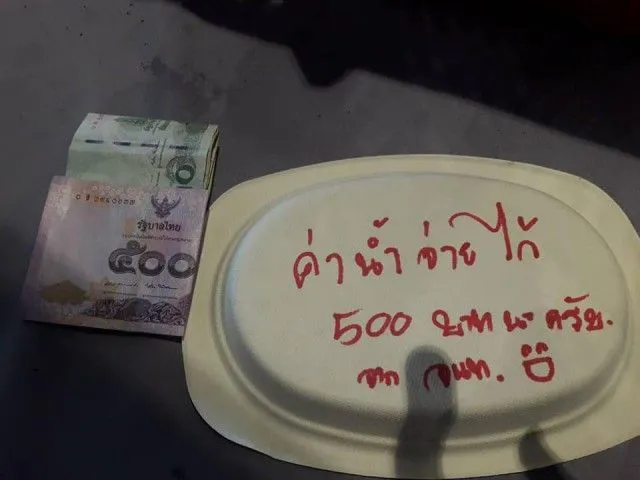 รัฐบาลไทย
๕๐๐
ค่าน้ำจ่าย ไก้
500 บาท นะ ครับ.
จาก จนท.